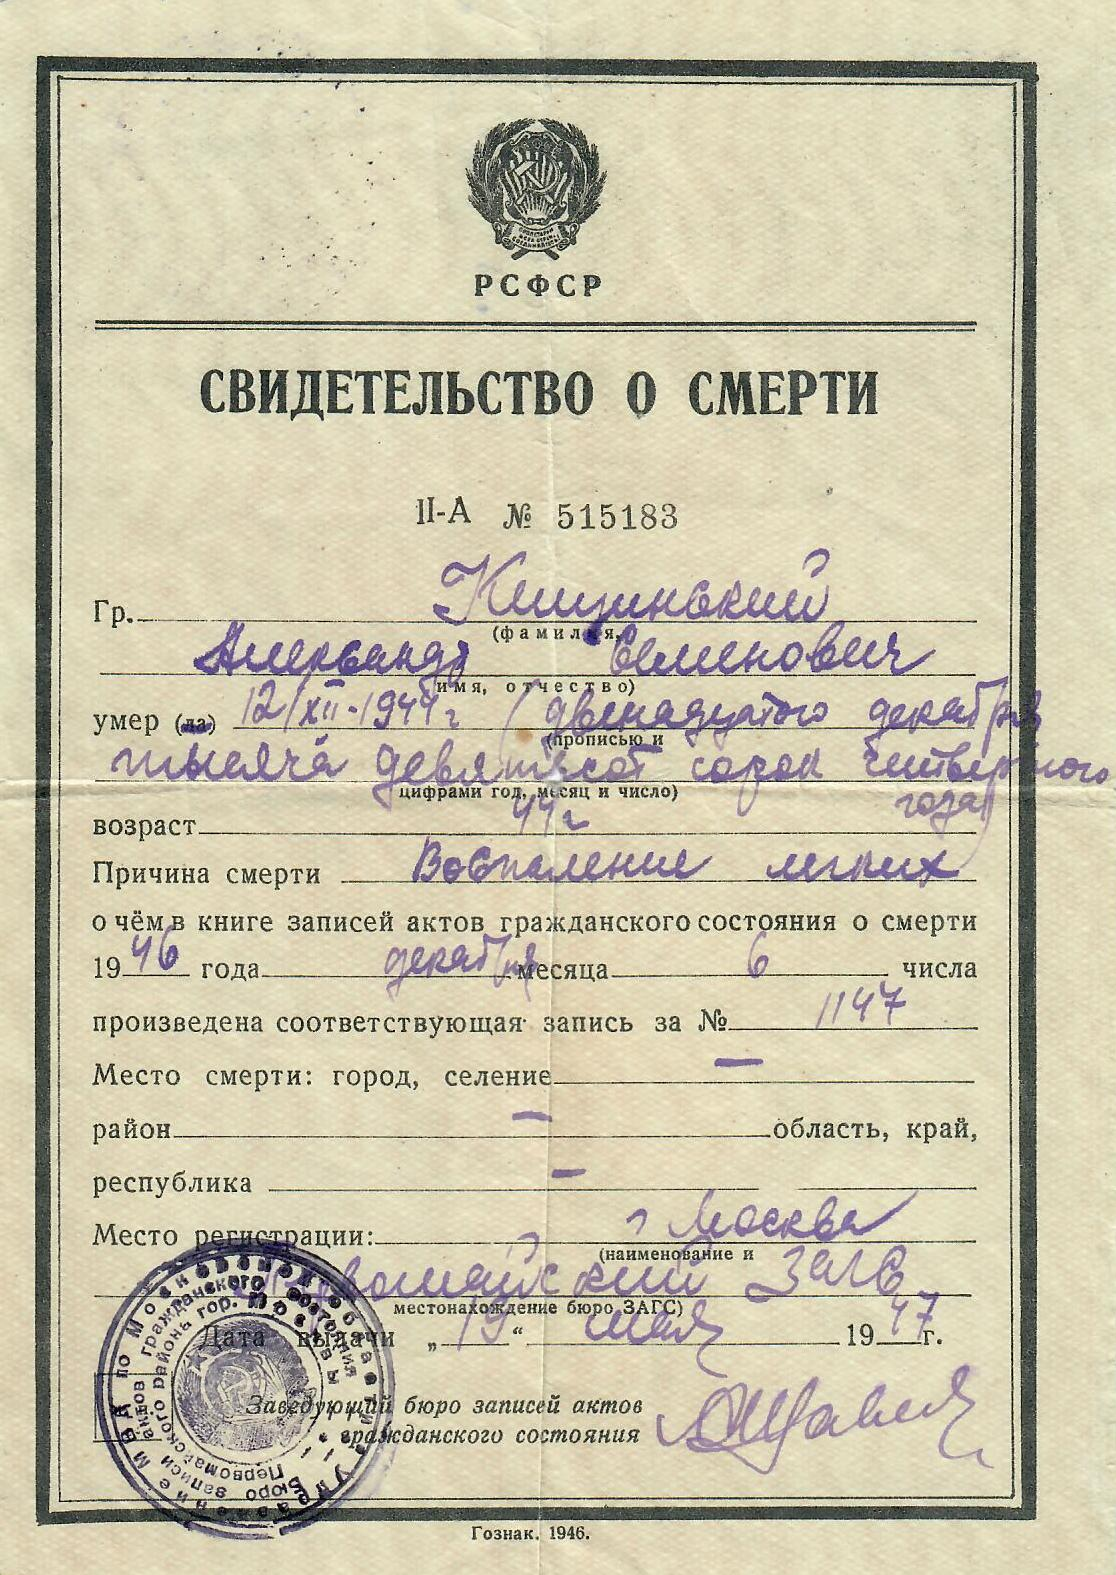 РСФСР
СВИДЕТЕЛЬСТВО О СМЕРТИ
II-А № 515183
Гр. Кищинский
(фамилия,
Александр Семенович
имя, отчество)
умер (ла) 12/XII-1944 г (двенадцатого декабря
(прописью и
тысяча девятьсот сорок четвертого
цифрами год, месяц и число)
года)
возраст 44 г
Причина смерти Воспаление легких
о чём в книге записей актов гражданского состояния о смерти
1946 года декабря месяца 6 числа
произведена соответствующая запись за № 1147
Место смерти: город, селение —
район — область, край,
республика —
Место регистрации: г Москва
(наименование и
Первомайский ЗАГС
местонахождение бюро ЗАГС)
Дата выдачи „ 19 “ мая 1947 г.
Заведующий бюро записей актов
гражданского состояния
Управление МВД по Московской области
Бюро записи актов гражданского состояния
Первомайского района гор. Москвы
Гознак. 1946.